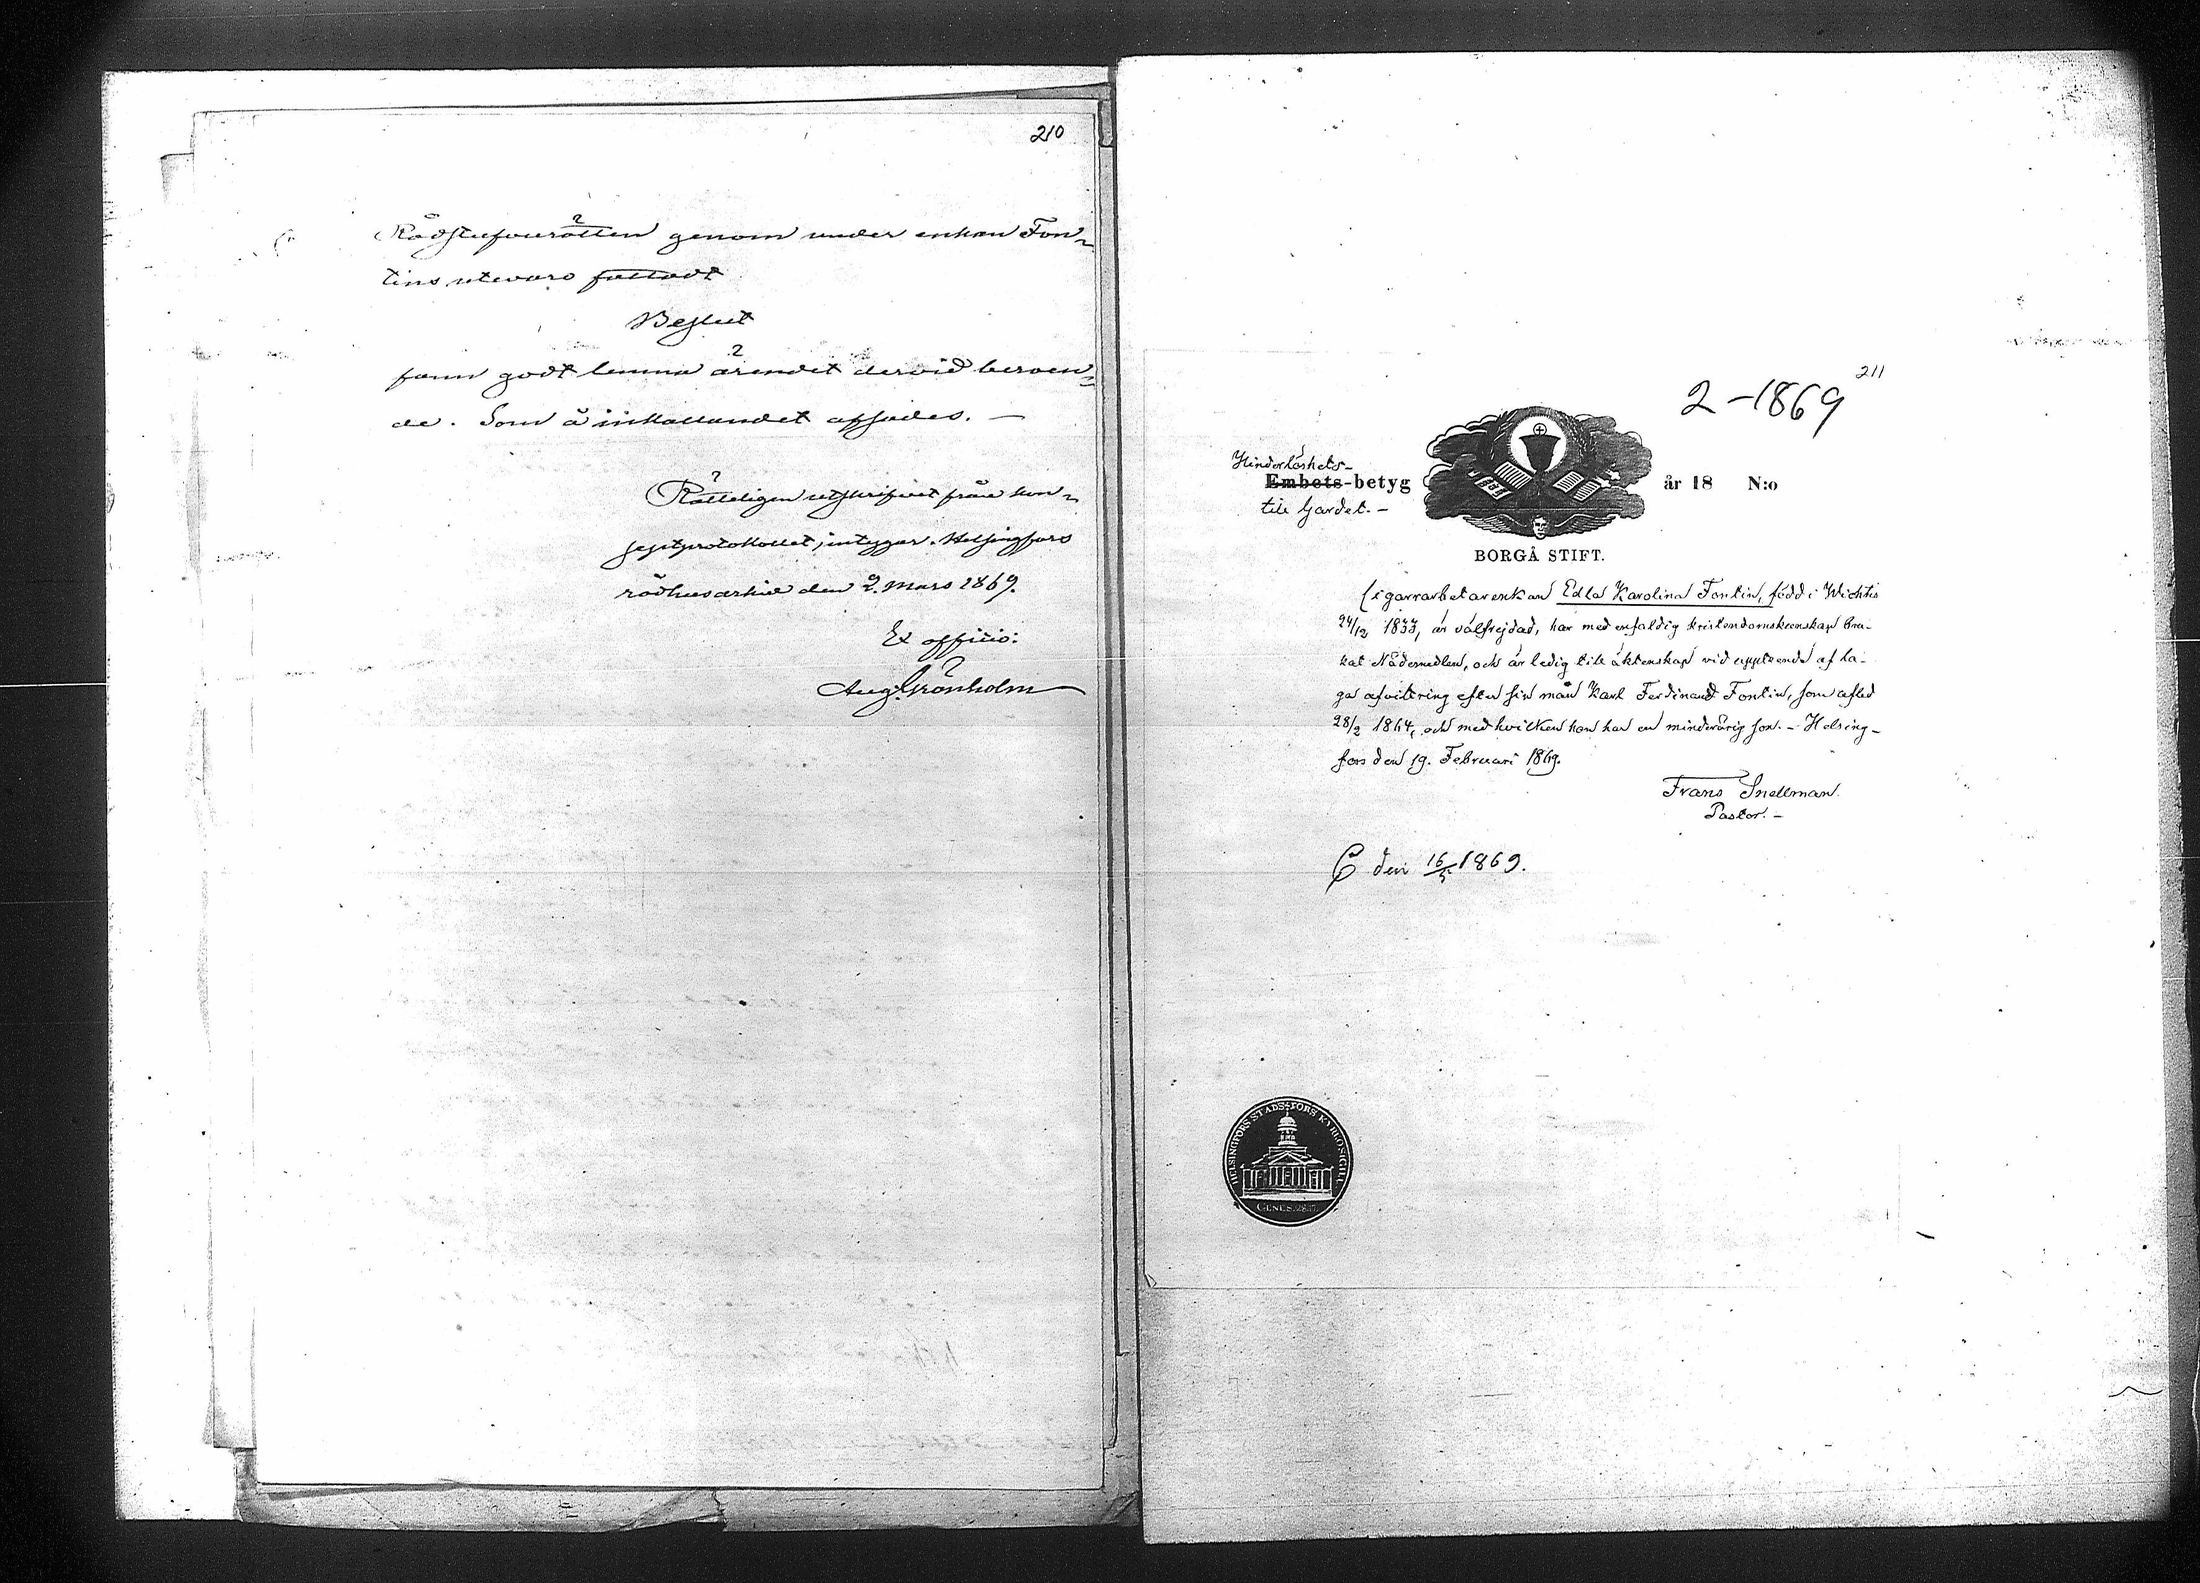 210
Rådstufvurätten genom under enkan Fon-
tins utevaro fattadt
Beslut
fann godt lemna ärendet dervid beroen-
de. Som å inkallandet afsades. —
Rätteligen utskrifvet från kon-
septprotokollet, intygar. Helsingfors
rådhusarkiv den 2. Mars 1869.
Ex officio:
Aug. Grönholm
211
2-1869
Hinderlöshets-
Embets-betyg
till Gardet. -
år 18 N:o
BORGÅ STIFT.
Cigarrarbetarenkan Edla Karolina Fontin, född i Wichtis
24/12 1833, är välfrejdad, har med enfaldig kristendomskunskap bru-
kat Nådemedlen, och är ledig till äktenskap vid uppteende af la-
ga afvittring efter sin man Karl Ferdinand Fontin, som afled
28/2 1864, och med hvilken hon har en minderårig son. - Helsing-
fors den 19. Februari 1869.
Frans Snellman.
Pastor. -
den 16/5 1869.
HELSINGFORS STADS-FÖRS KYRKOSIGILL